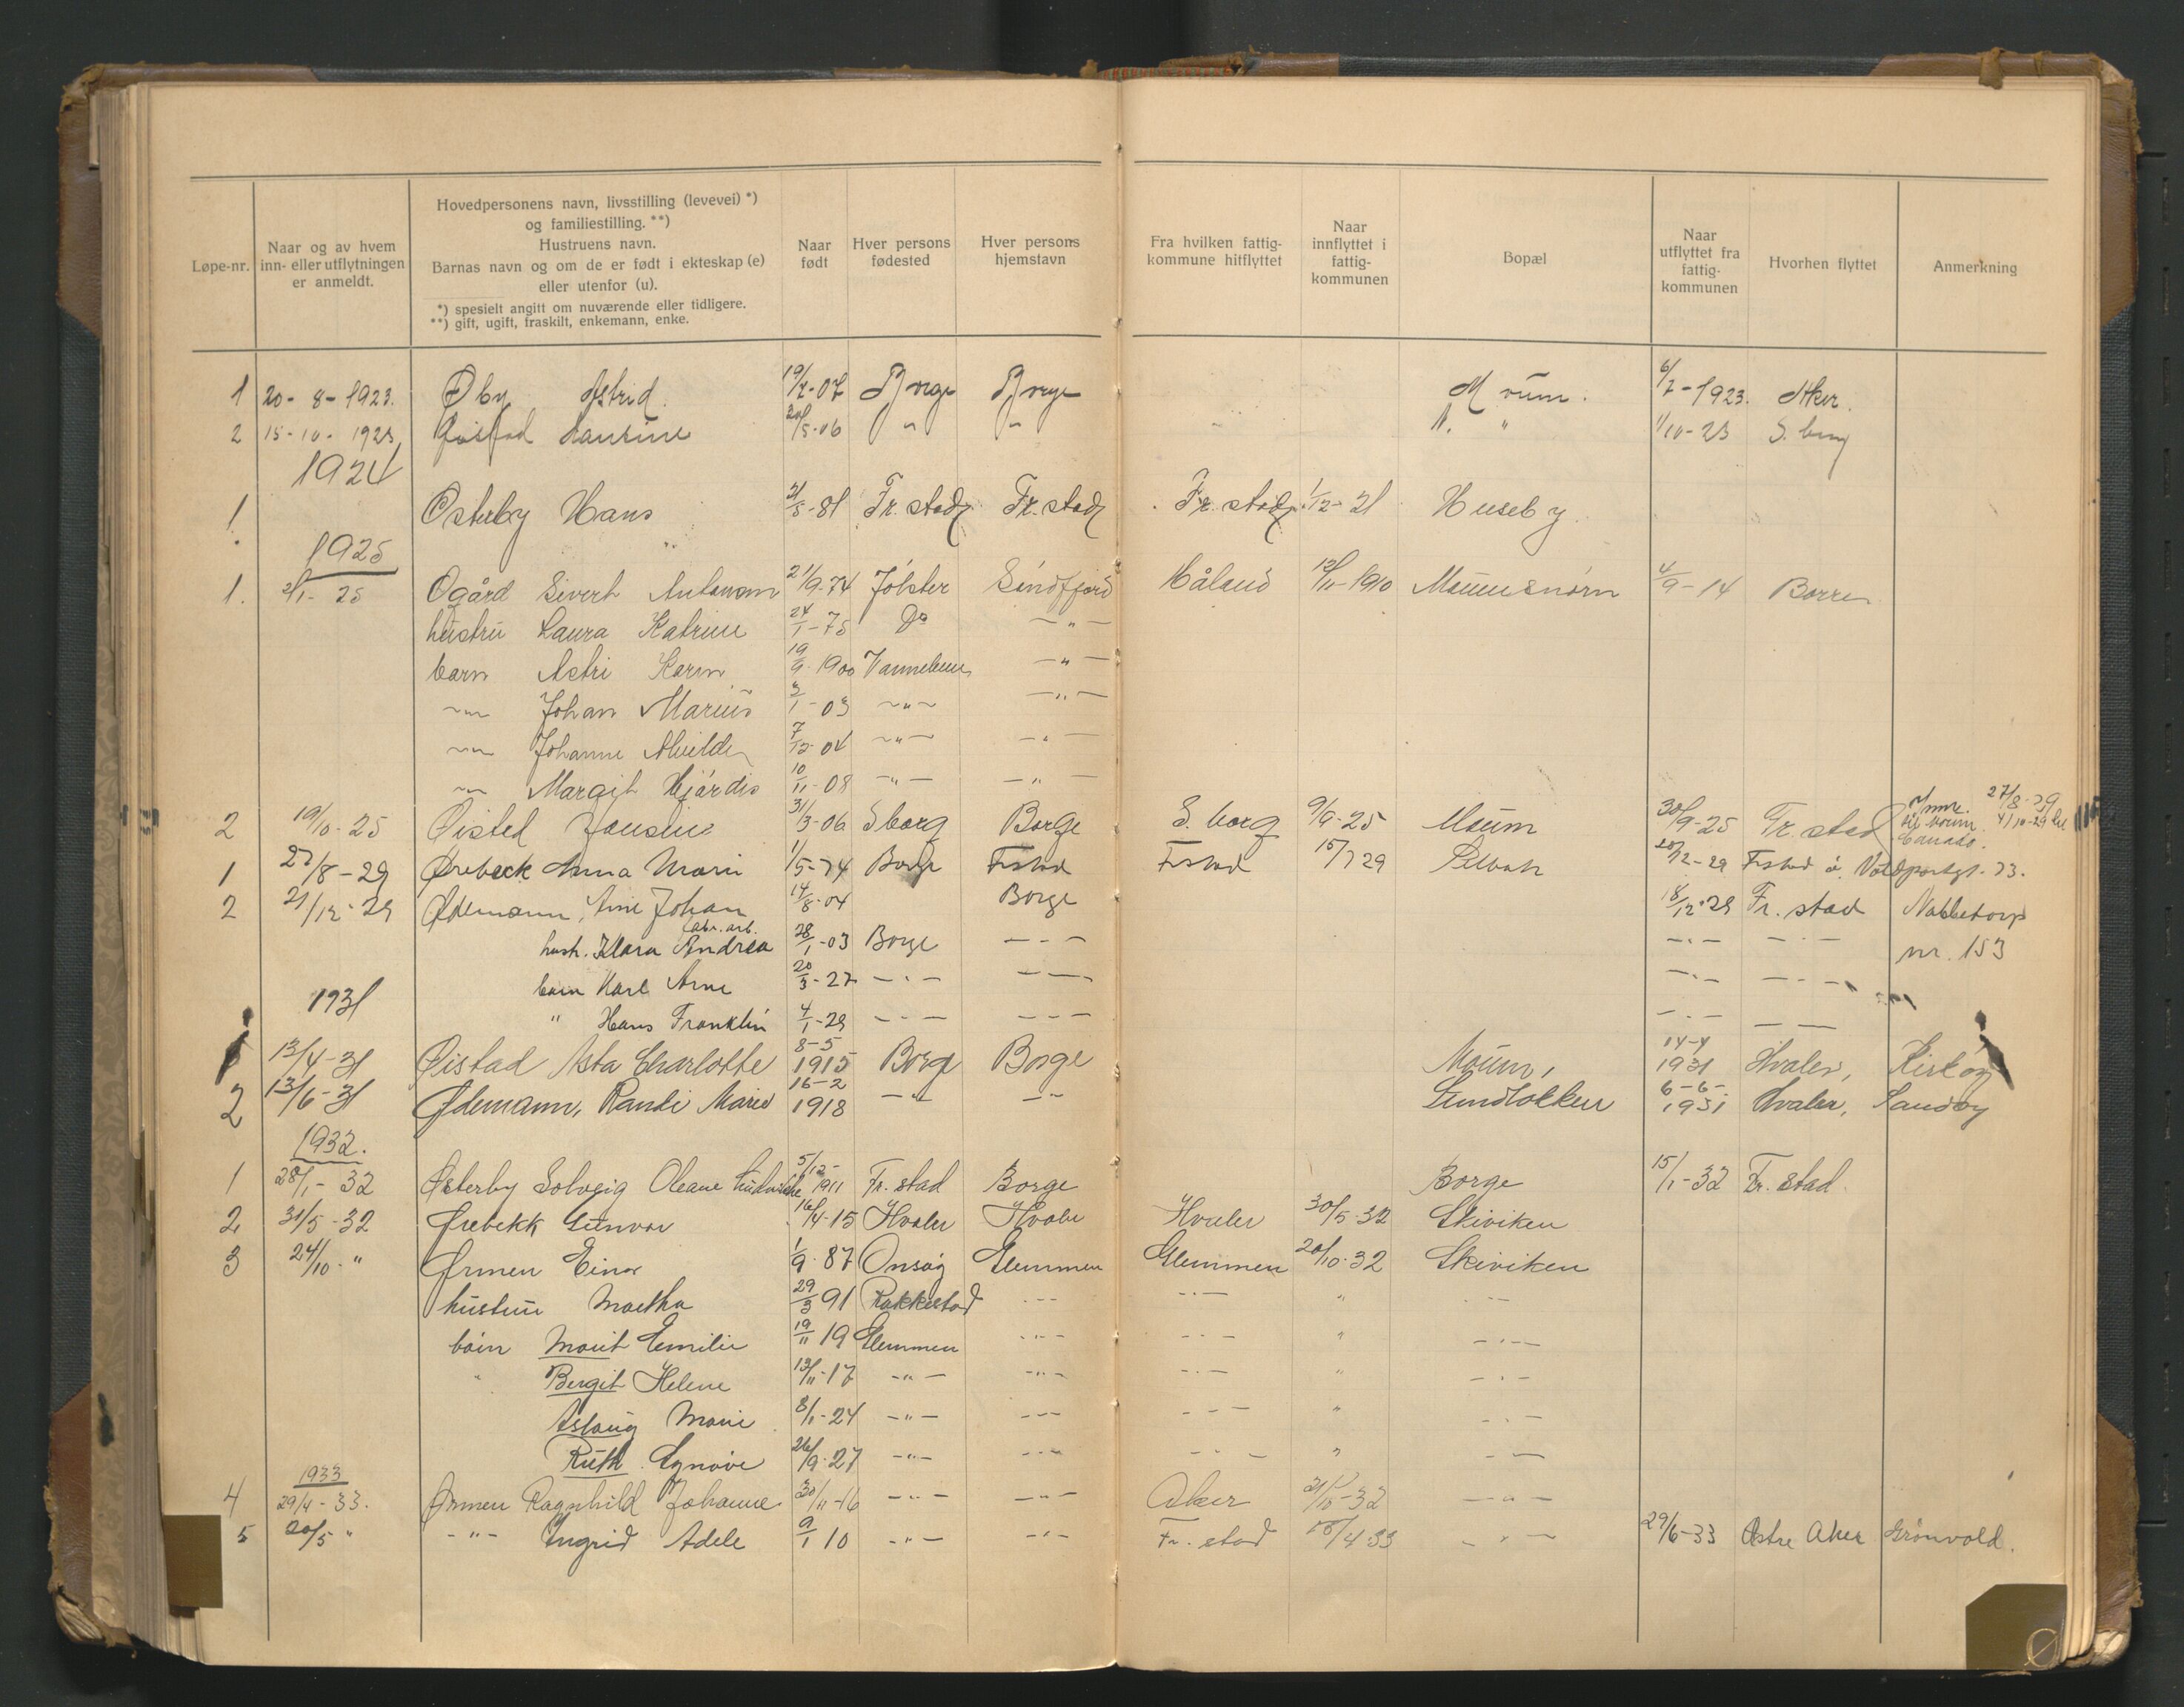 Løpe-nr.
Naar og av hvem
inn- eller utflytningen
er anmeldt.
Hovedpersonens navn, livsstilling (levevei) *)
og familiestilling. **)
Hustruens navn.
Barnas navn og om de er født i ekteskap (e)
eller utenfor (u).
*) spesielt angitt om nuværende eller tidligere.
**) gift, ugift, fraskilt, enkemann, enke.
Naar
født
Hver persons
fødested
Hver persons
hjemstavn
Fra hvilken fattig-
kommune hitflyttet
Naar
innflyttet i
fattig-
kommunen
Bopæl
Naar
utflyttet fra
fattig-
kommunen
Hvorhen flyttet
Anmerkning
1 20-8-1923. Øby Astrid. Borge Borge Moum. 1923. Aker.
2 15-10-1923 " " " 1/10-23 S.borg
1924
1 Østerby Hans 2/5-81 Fr.stad Fr.stad Fr.stad 1/12-21 Huseby
1925
1. 2/1-25 Øgård Sivert 21/9-74 Jölster Söndfjord Håland 1910 4/9-14 Borre
hustru Laura Katrine 24/1-75 Do — " —
barn Astri Karin 19/9-1900 — " —
Johan Marius 3/1-03 — " — — " —
Johanne 7/12-04 — " — — " —
Margit Hjördis 10/11-08 — " — — " —
2 19/10-25 Øisted Jensine 31/3-06 Sborg Borge S.borg 9/9-25 Moum 30/9-25 Fr.stad 27/8-29
Canada.
1 27/8-29 Ørebeck Anna Marie 1/5-74 Borge Frstad Frstad 15/7 29 Selbak 20/12-29 Frstad 73.
2 21/12-29 Ødemann, Arne Johan 14/8-04 Borge 18/12-29 Fr.stad Nabbetorp
fabr.arb.
hustr. Klara Andrea 28/1-03 Borge — " — — " — — " — nr. 153
barn Karl Arne 20/3-27 — " — — " — — " — — " —
1931
" Hans Franklin 4/1-29 — " — — " — — " — — —
1 13/4-31 Øistad Asta Charlotte 8-5 1915 Borge Borge Moum, 14-4 1931 Hvaler, Kirköy
2 13/6-31 Ødemann, Randi Marie 16-2 1918 — " — — " Lundlökken 6-6- 1931 Hvaler, Sandöy
1932.
1 28/1-32 Østerby Solveig Oleane 5/12-1911 Fr.stad Borge Borge 15/1-32 Fr.stad
2 31/5-32 Ørebekk Gunvor 16/4-15 Hvaler Hvaler Hvaler 30/5-32 Skiviken
3 24/10-" Ørmen Einar 1/9-87 Onsøy Glemmen Glemmen 20/10-32 Skiviken
hustru Martha 29/3 91 Rakkestad — " — — " — " — " —
barn Marit Emilie 19/11 19 Glemmen — " — — " — " — " —
" Bergit Helene 13/11-17 — " — — " — — " — " — " —
Aslaug Marie 8/1-24 — " — — " — — " — " — " —
Ruth Synøve 26/9-27 — " — — " — — " — " — " —
1933
4 29/4-33. Ørmen Ragnhild Johanne 30/11-16 — " — — " — Aker 21/10-32 — " —
5 20/5 " — " — Ingrid Adele 9/1 10 — " — — " — Fr.stad 4 33 — " — 29/6-33 Østre Aker Grönvold.
Ø